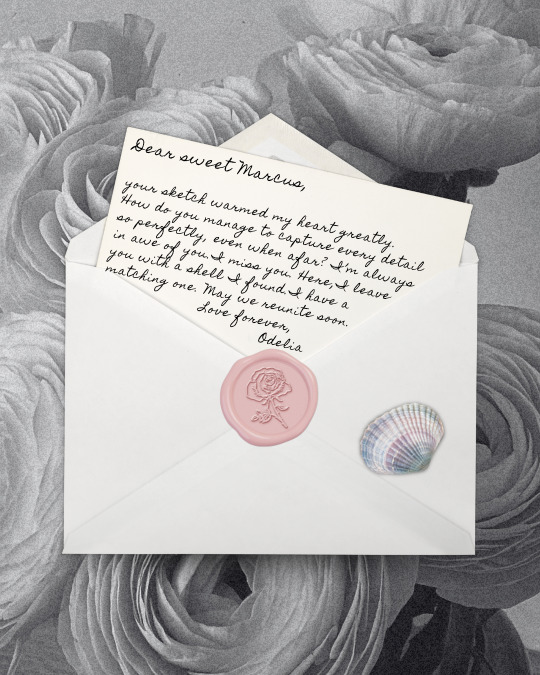 Dear sweet Marcus,
your sketch warmed my heart greatly.
How do you manage to capture every detail
so perfectly, even when afar? I'm always
in awe of you. I miss you. Here, I leave
you with a shell I found. I have a
matching one. May we reunite soon.
Love forever,
Odelia